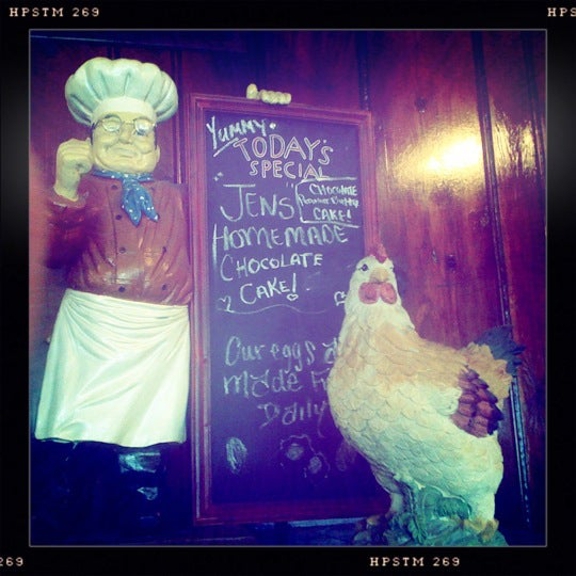 HPSTM 269
HPS
YUMMY.
TODAY'S
SPECIAL
JENS
CHOCOLATE
CAKE!
HOMEMADE
CHOCOLATE
CAKE!
Our eggs
made
Daily
269
HPSTM 269